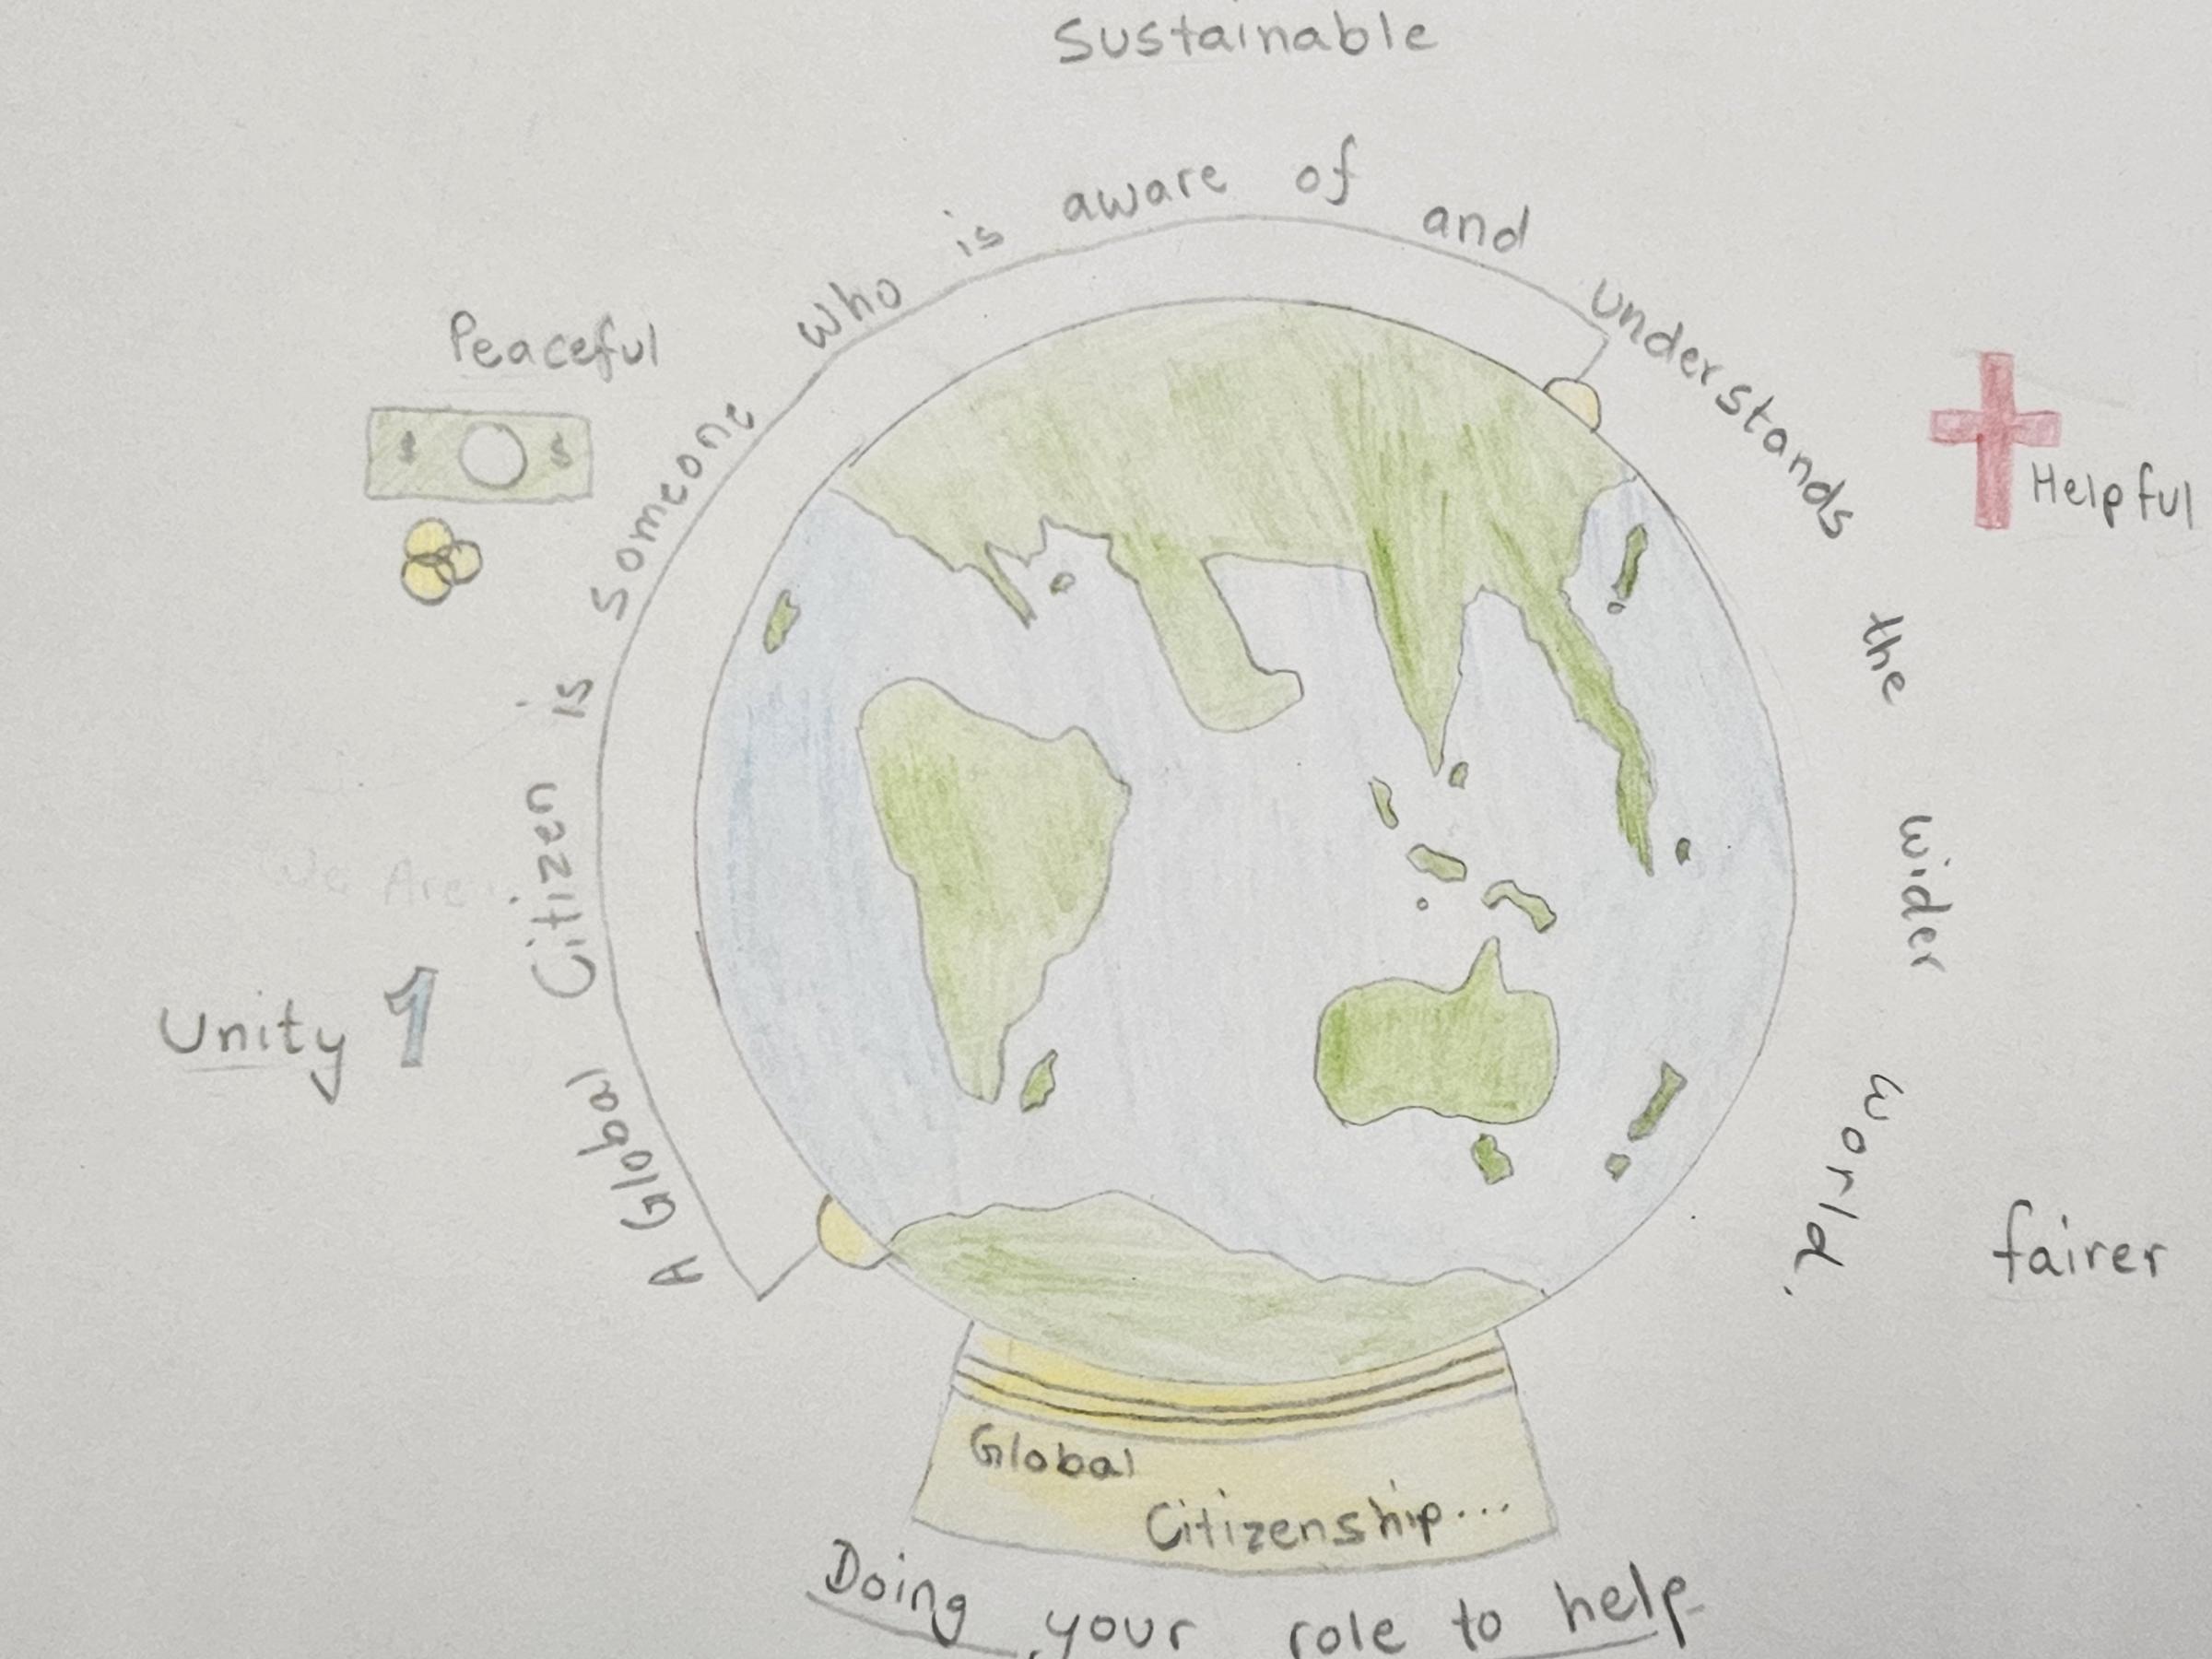 Sustainable
A Global Citizen is Someone who is aware of and understands the wider world.
Peaceful
$ $
Helpful
We Are
Unity 1
fairer
Global
Citizenship...
Doing your role to help